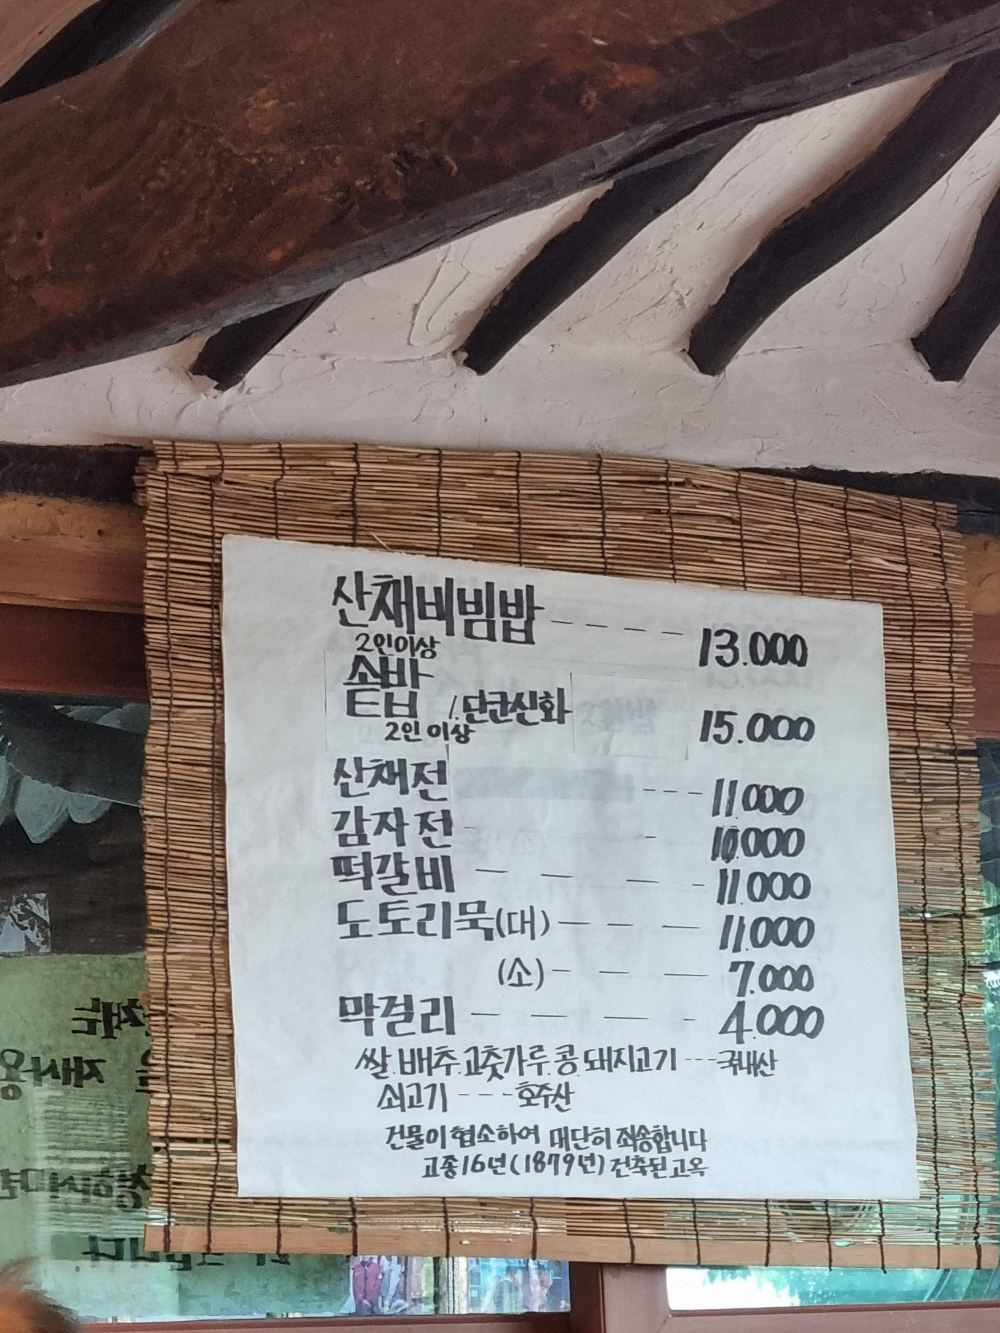 산채비빔밥 ---- 13.000
2인이상
솥밥 /.단군신화
2인 이상 15.000
산채전 --- 11000
감자전 - 10.000
떡갈비 ---- 11.000
도토리묵(대) --- 11.000
(소) --- 7.000
막걸리 ----- 4.000
쌀.배추.고춧가루.콩.돼지고기 --- 국내산
쇠고기 --- 호주산
건물이 협소하여 대단히 죄송합니다
고종16년(1879년) 건축된 고옥